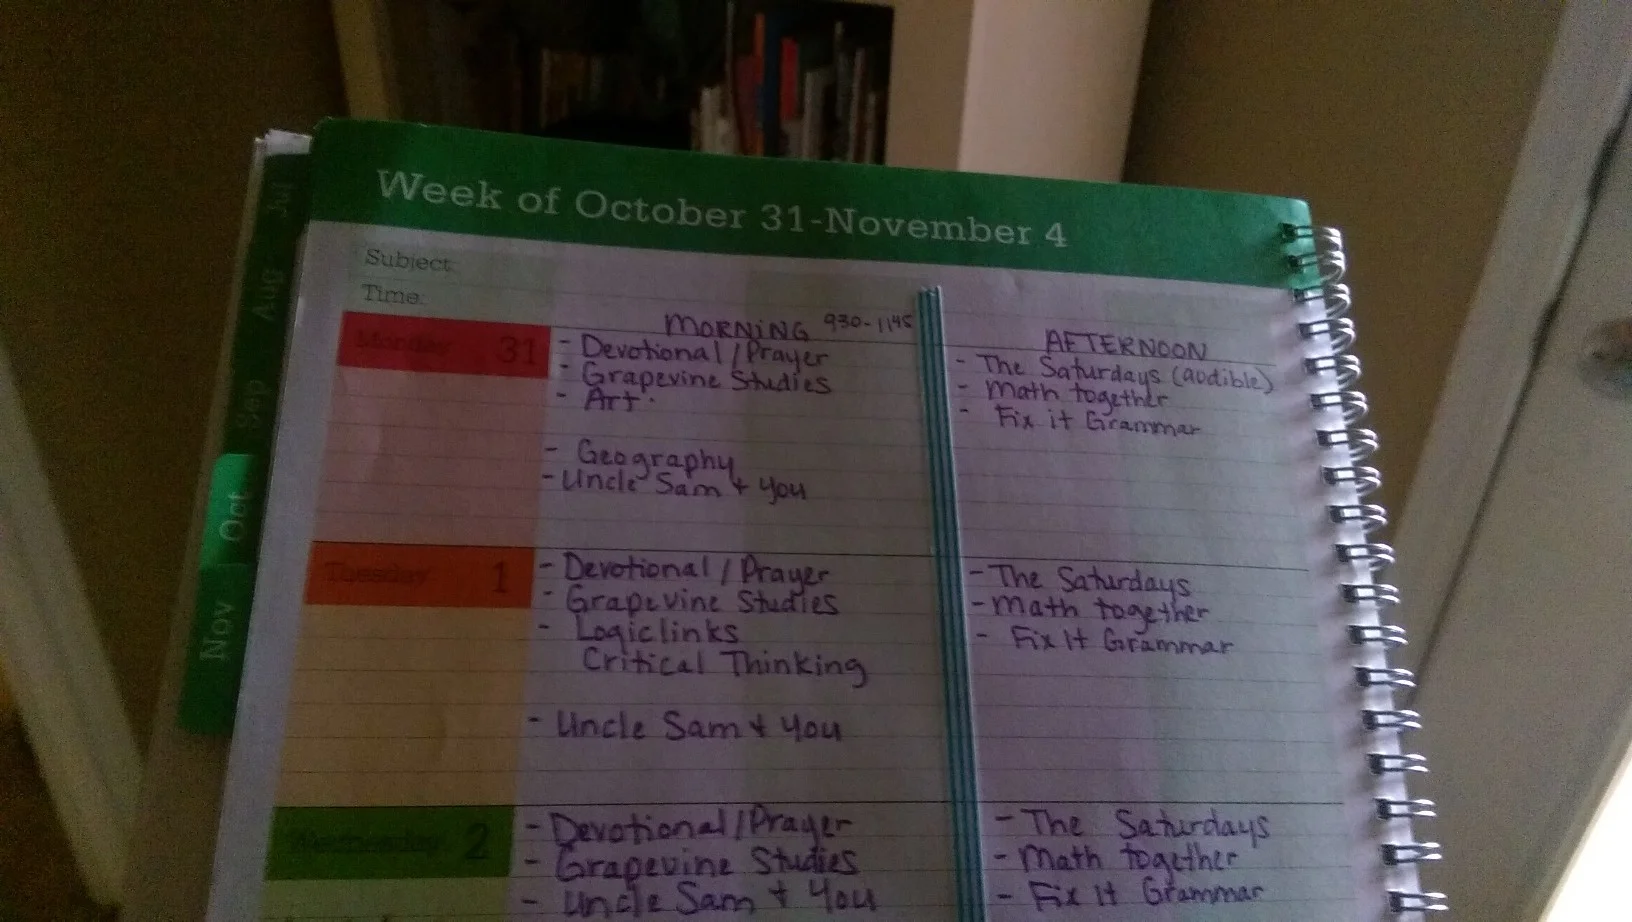 Week of October 31-November 4
Subject:
Time:
MORNING 930-1145
AFTERNOON
Monday 31
- Devotional / Prayer
- Grapevine Studies
- Art
- Geography
- Uncle Sam + You
- The Saturdays (audible)
- Math together
- Fix it Grammar
Tuesday 1
- Devotional / Prayer
- Grapevine Studies
- Logiclinks
Critical Thinking
- Uncle Sam + You
- The Saturdays
- Math together
- Fix It Grammar
Wednesday 2
- Devotional / Prayer
- Grapevine Studies
- Uncle Sam + You
- The Saturdays
- Math together
- Fix It Grammar
Jul
Aug
Sep
Oct
Nov